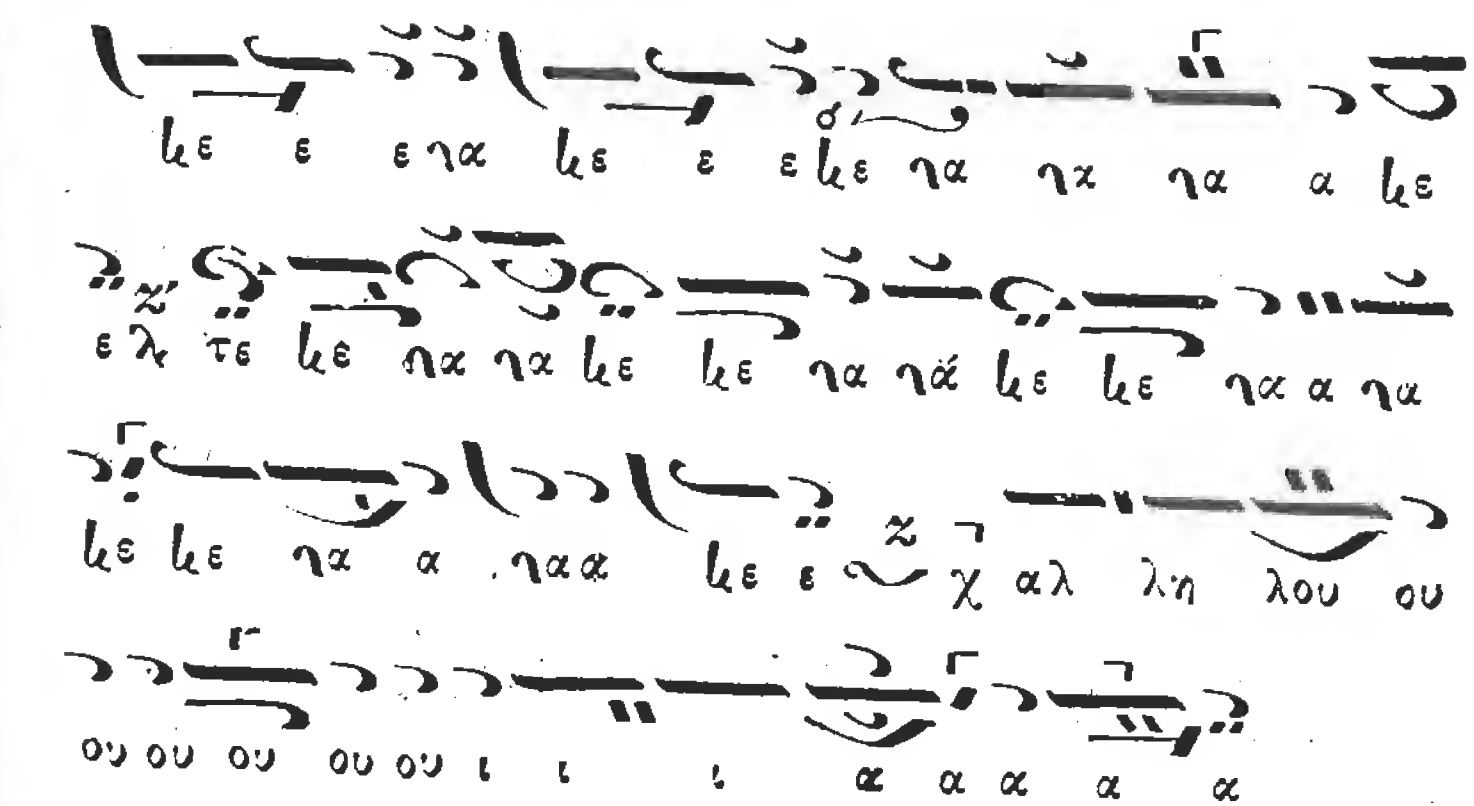 νε ε ε να νε ε ε νε να να να α νε
ε ζ' λ τε νε να να νε νε να να νε νε να α να
νε νε να α να α νε ε ζ χ αλ λη λου ου
ου ου ου ου ου ι ι ι α α α α α